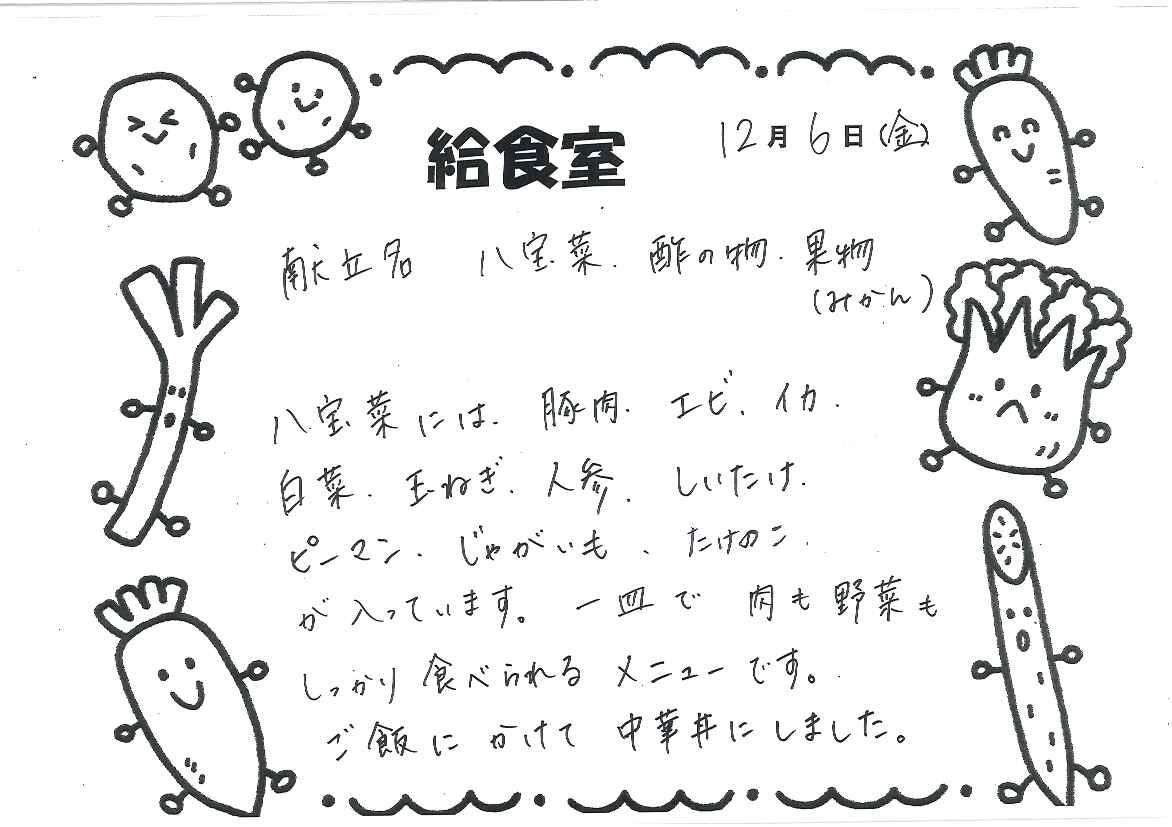 給食室
12月6日(金)
献立名 八宝菜、酢の物、果物
(みかん)
八宝菜には、豚肉、エビ、イカ、
白菜、玉ねぎ、人参、しいたけ、
ピーマン、じゃがいも、たけのこ、
が入っています。一皿で肉も野菜も
しっかり食べられるメニューです。
ご飯にかけて中華丼にしました。